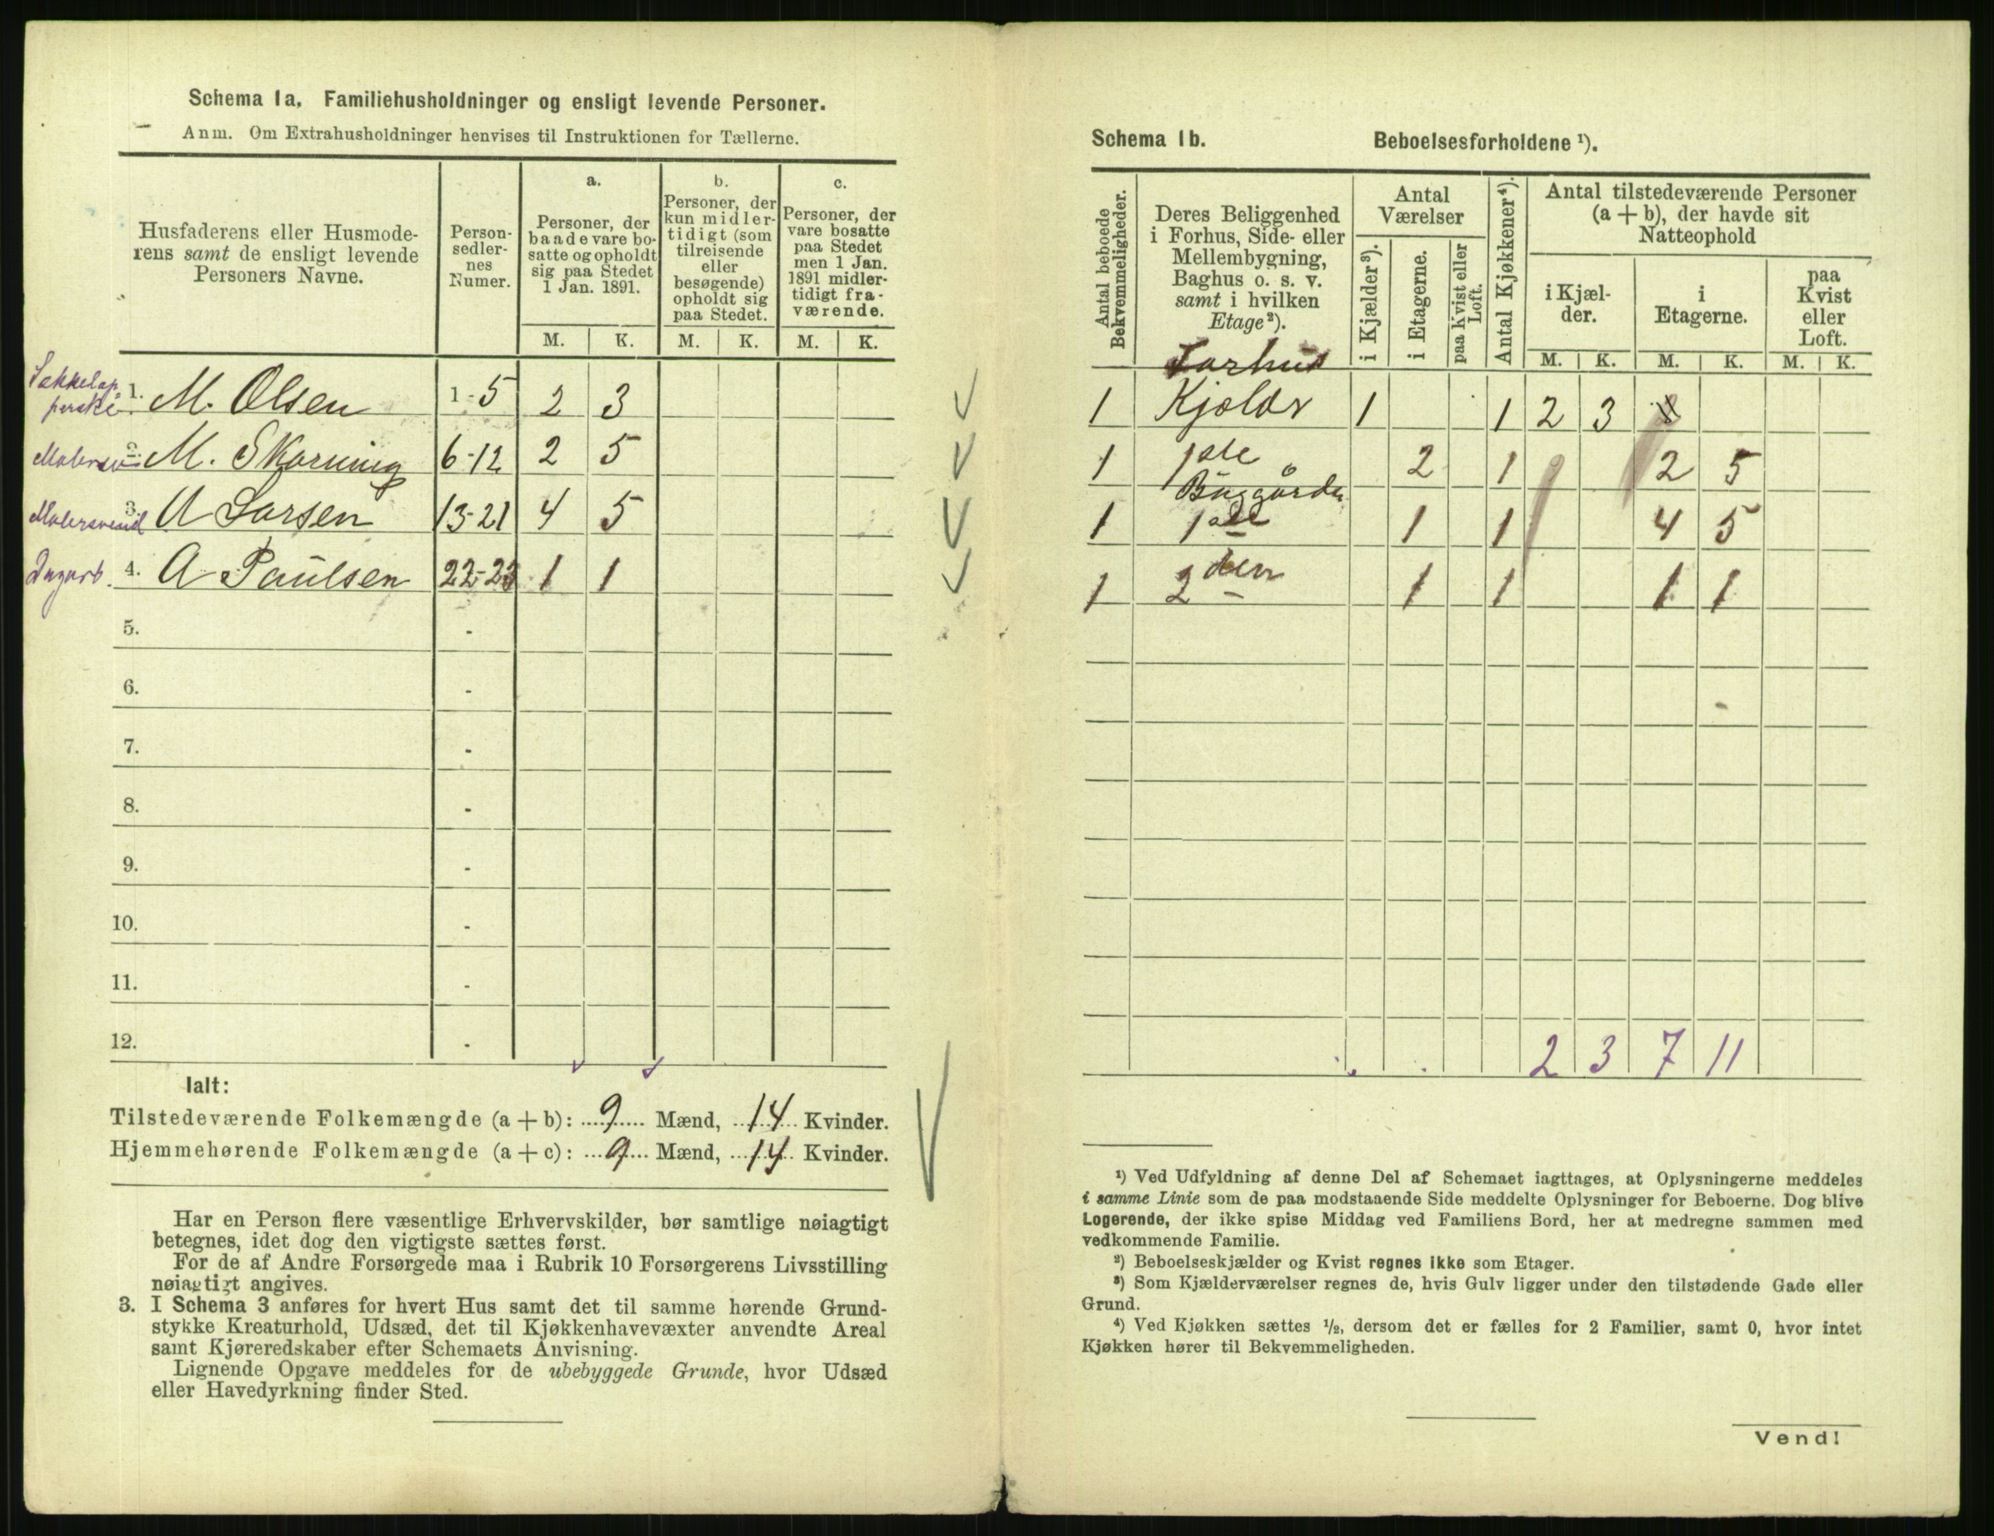 Schema 1a. Familiehusholdninger og ensligt levende Personer.
Anm. Om Extrahusholdninger henvises til Instruktionen for Tællerne.
Husfaderens eller Husmoderens samt de ensligt levende Personers Navne.
Person-sedler-nes Numer.
a.
Personer, der baade vare bosatte og opholdt sig paa Stedet 1 Jan. 1891.
b.
Personer, der kun midlertidigt (som tilreisende eller besøgende) opholdt sig paa Stedet.
c.
Personer, der vare bosatte paa Stedet men 1 Jan. 1891 midlertidigt fraværende.
M. K. M. K. M. K.
1. M. Olsen 1-5 2 3
2. M. Skorning 6-12 2 5
Malersvend 3. A Larsen 13-21 4 5
Dagarb. 4. A Paulsen 22-23 1 1
5. -
6. -
7. -
8. -
9. -
10. -
11. -
12. -
Ialt:
Tilstedeværende Folkemængde (a + b): 9 Mænd, 14 Kvinder.
Hjemmehørende Folkemængde (a + c): 9 Mænd, 14 Kvinder.
Har en Person flere væsentlige Erhvervskilder, bør samtlige nøiagtigt
betegnes, idet dog den vigtigste sættes først.
For de af Andre Forsørgede maa i Rubrik 10 Forsørgerens Livsstilling
nøiagtigt angives.
3. I Schema 3 anføres for hvert Hus samt det til samme hørende Grund-
stykke Kreaturhold, Udsæd, det til Kjøkkenhavevæxter anvendte Areal
samt Kjøreredskaber efter Schemaets Anvisning.
Lignende Opgave meddeles for de ubebyggede Grunde, hvor Udsæd
eller Havedyrkning finder Sted.
Schema 1b. Beboelsesforholdene ¹).
Antal beboede Bekvemmeligheder.
Deres Beliggenhed i Forhus, Side- eller Mellembygning, Baghus o. s. v. samt i hvilken Etage²).
Antal Værelser
i Kjælder³).
i Etagerne.
paa Kvist eller Loft.
Antal Kjøkkener⁴).
Antal tilstedeværende Personer (a + b), der havde sit Natteophold
i Kjælder.
i Etagerne.
paa Kvist eller Loft.
M. K. M. K. M. K.
Forhus
1 Kjelder 1 1 2 3
1 1ste 2 1 2 5
Baggården
1 1ste 1 1 4 5
1 2den 1 1 1 1
2 3 7 11
¹) Ved Udfyldning af denne Del af Schemaet iagttages, at Oplysningerne meddeles
i samme Linie som de paa modstaaende Side meddelte Oplysninger for Beboerne. Dog blive
Logerende, der ikke spise Middag ved Familiens Bord, her at medregne sammen med
vedkommende Familie.
²) Beboelseskjælder og Kvist regnes ikke som Etager.
³) Som Kjælderværelser regnes de, hvis Gulv ligger under den tilstødende Gade eller
Grund.
⁴) Ved Kjøkken sættes ½, dersom det er fælles for 2 Familier, samt 0, hvor intet
Kjøkken hører til Bekvemmeligheden.
Vend!